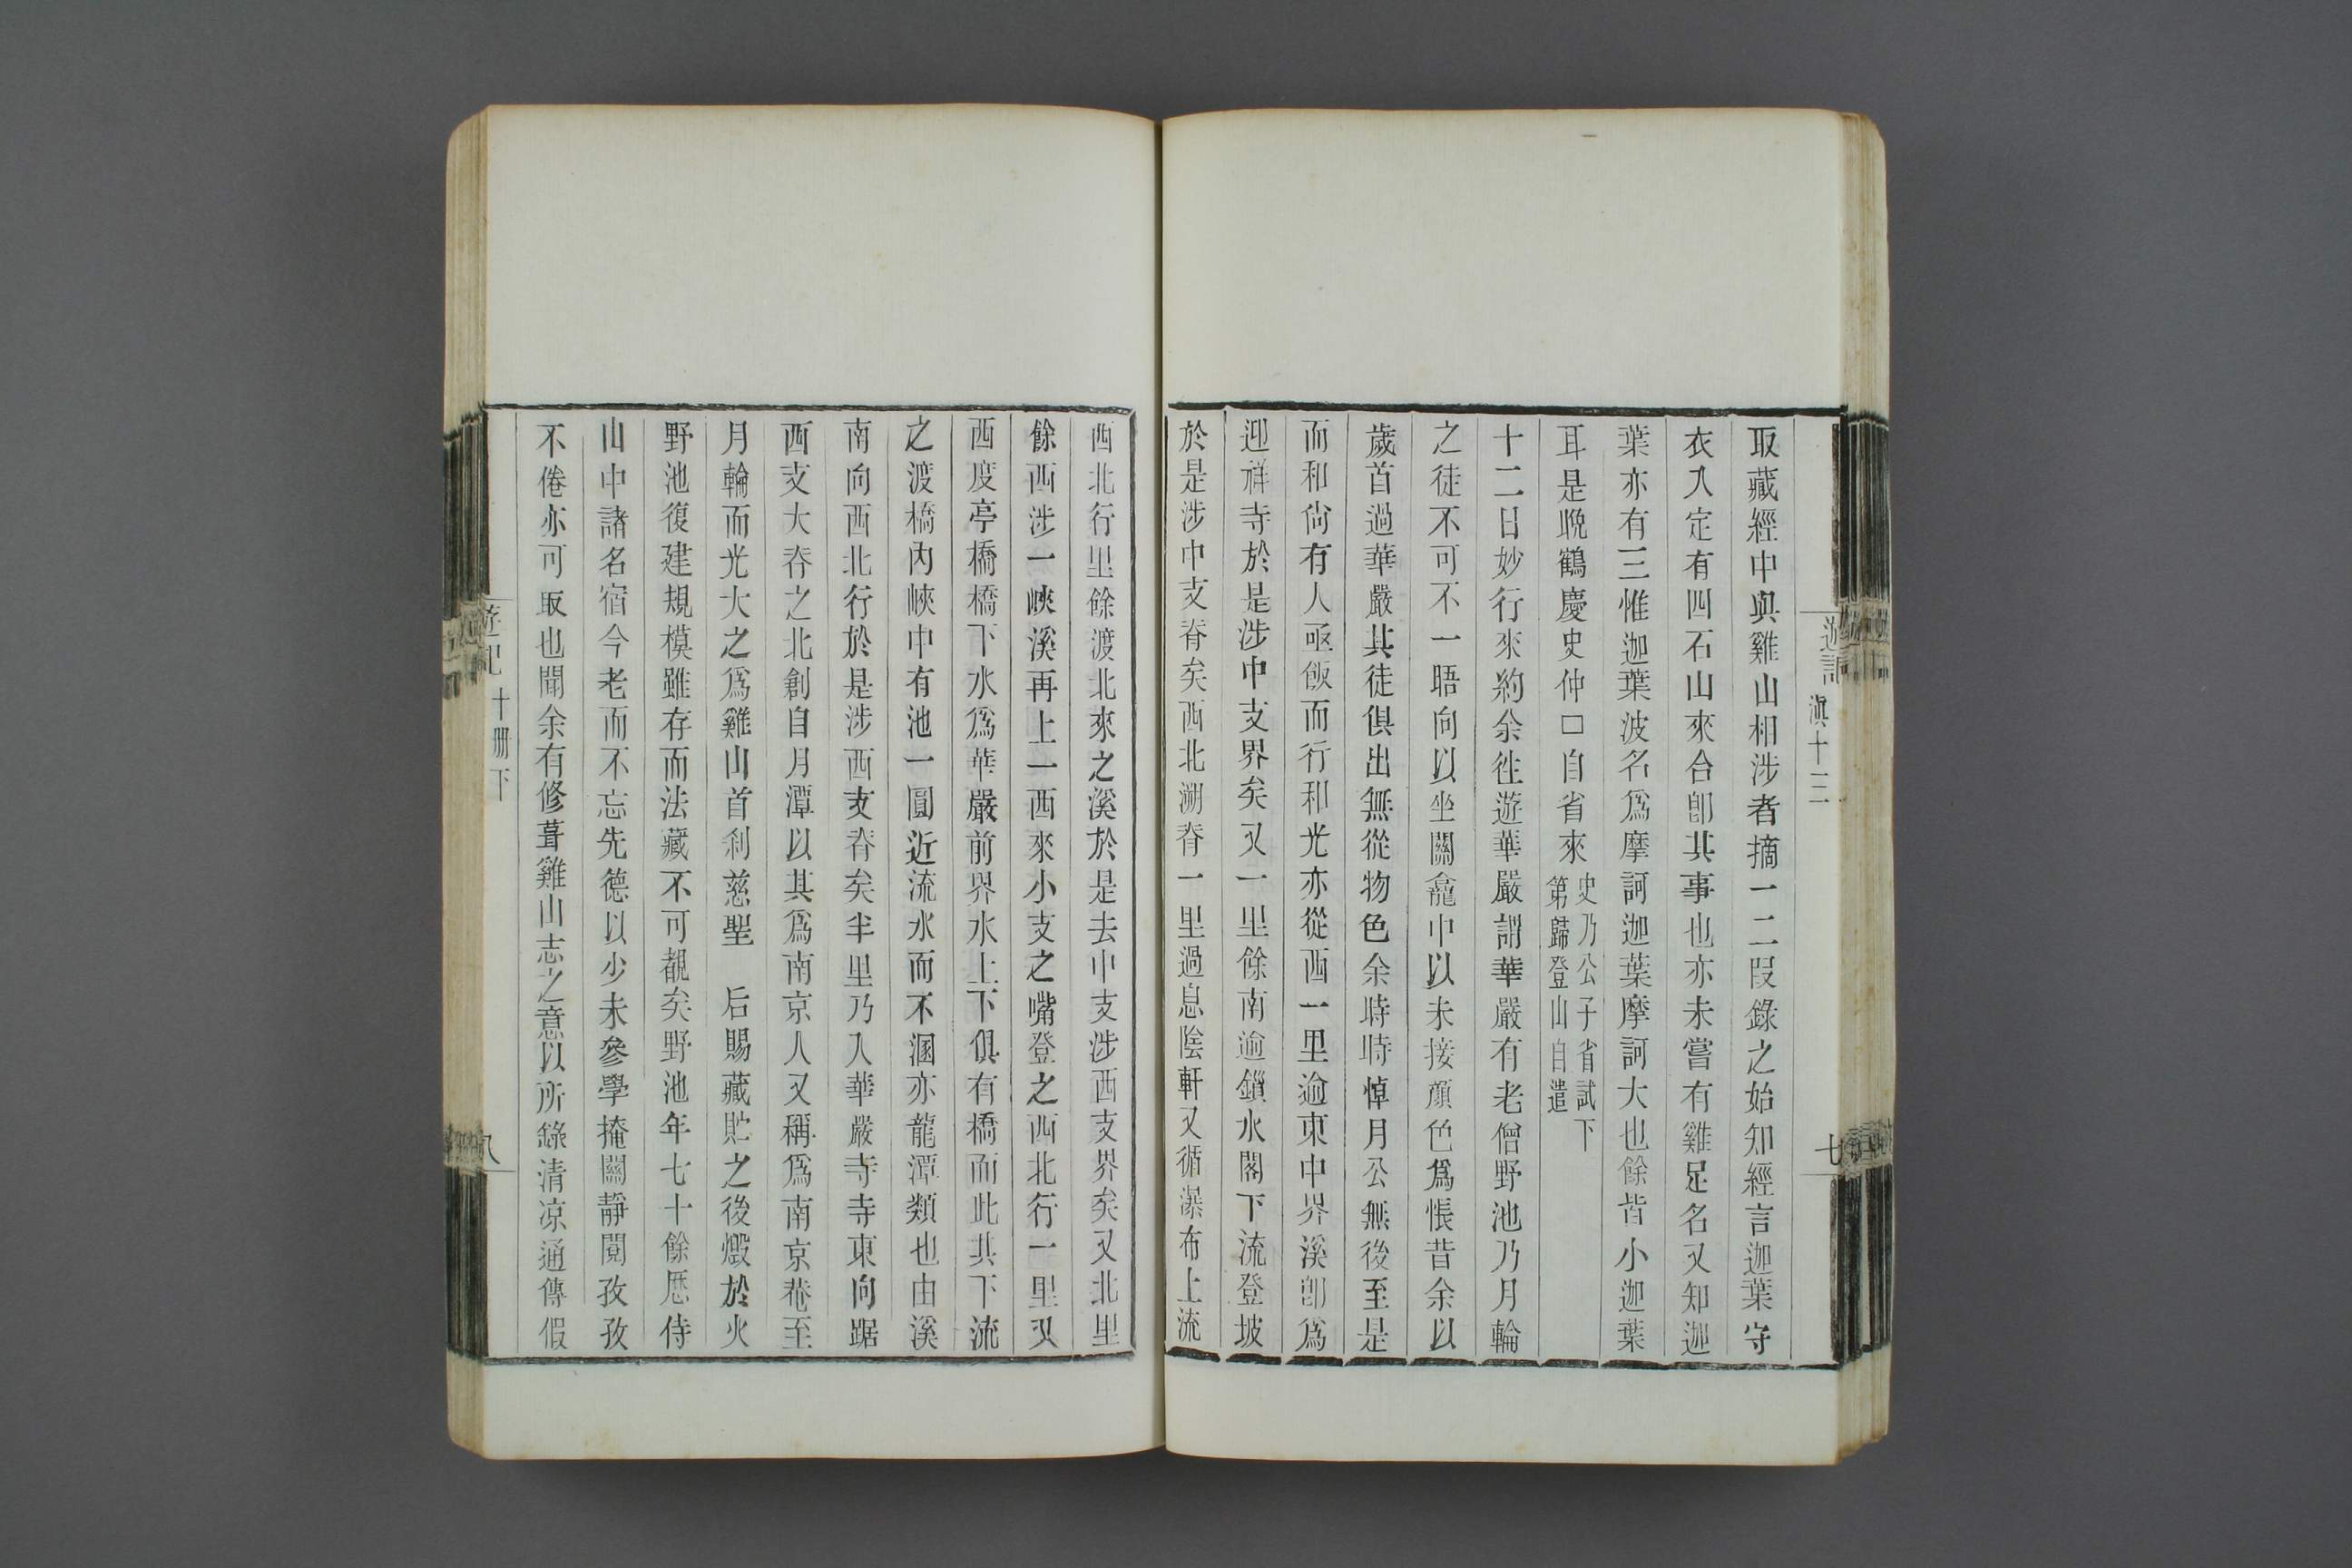 遊記
滇十三
七
取藏經中與雞山相涉者摘一二段錄之始知經言迦葉守
衣入定有四石山來合卽其事也亦未嘗有雞足名又知迦
葉亦有三惟迦葉波名爲摩訶迦葉摩訶大也餘皆小迦葉
耳是晚鶴慶史仲□自省來史乃公子省試下第歸登山自遣
十二日妙行來約余往遊華嚴謂華嚴有老僧野池乃月輪
之徒不可不一晤向以坐關龕中以未接顏色爲悵昔余以
歲首過華嚴其徒俱出無從物色余時時悼月公無後至是
而和尙有人亟飯而行和光亦從西一里逾東中界溪卽爲
迎祥寺於是涉中支界矣又一里餘南逾鎖水閣下流登坡
於是涉中支脊矣西北溯脊一里過息陰軒又循瀑布上流
西北行里餘渡北來之溪於是去中支涉西支界矣又北里
餘西涉一峽溪再上一西來小支之嘴登之西北行一里又
西度亭橋橋下水爲華嚴前界水上下俱有橋而此其下流
之渡橋內峽中有池一圓近流水而不溷亦龍潭類也由溪
南向西北行於是涉西支脊矣半里乃入華嚴寺寺東向踞
西支大脊之北創自月潭以其爲南京人又稱爲南京菴至
月輪而光大之爲雞山首刹慈聖　后賜藏貯之後燬於火
野池復建規模雖存而法藏不可覩矣野池年七十餘厯侍
山中諸名宿今老而不忘先德以少未參學掩關靜閱孜孜
不倦亦可取也聞余有修葺雞山志之意以所錄清涼通傳假
遊記
十冊下
八